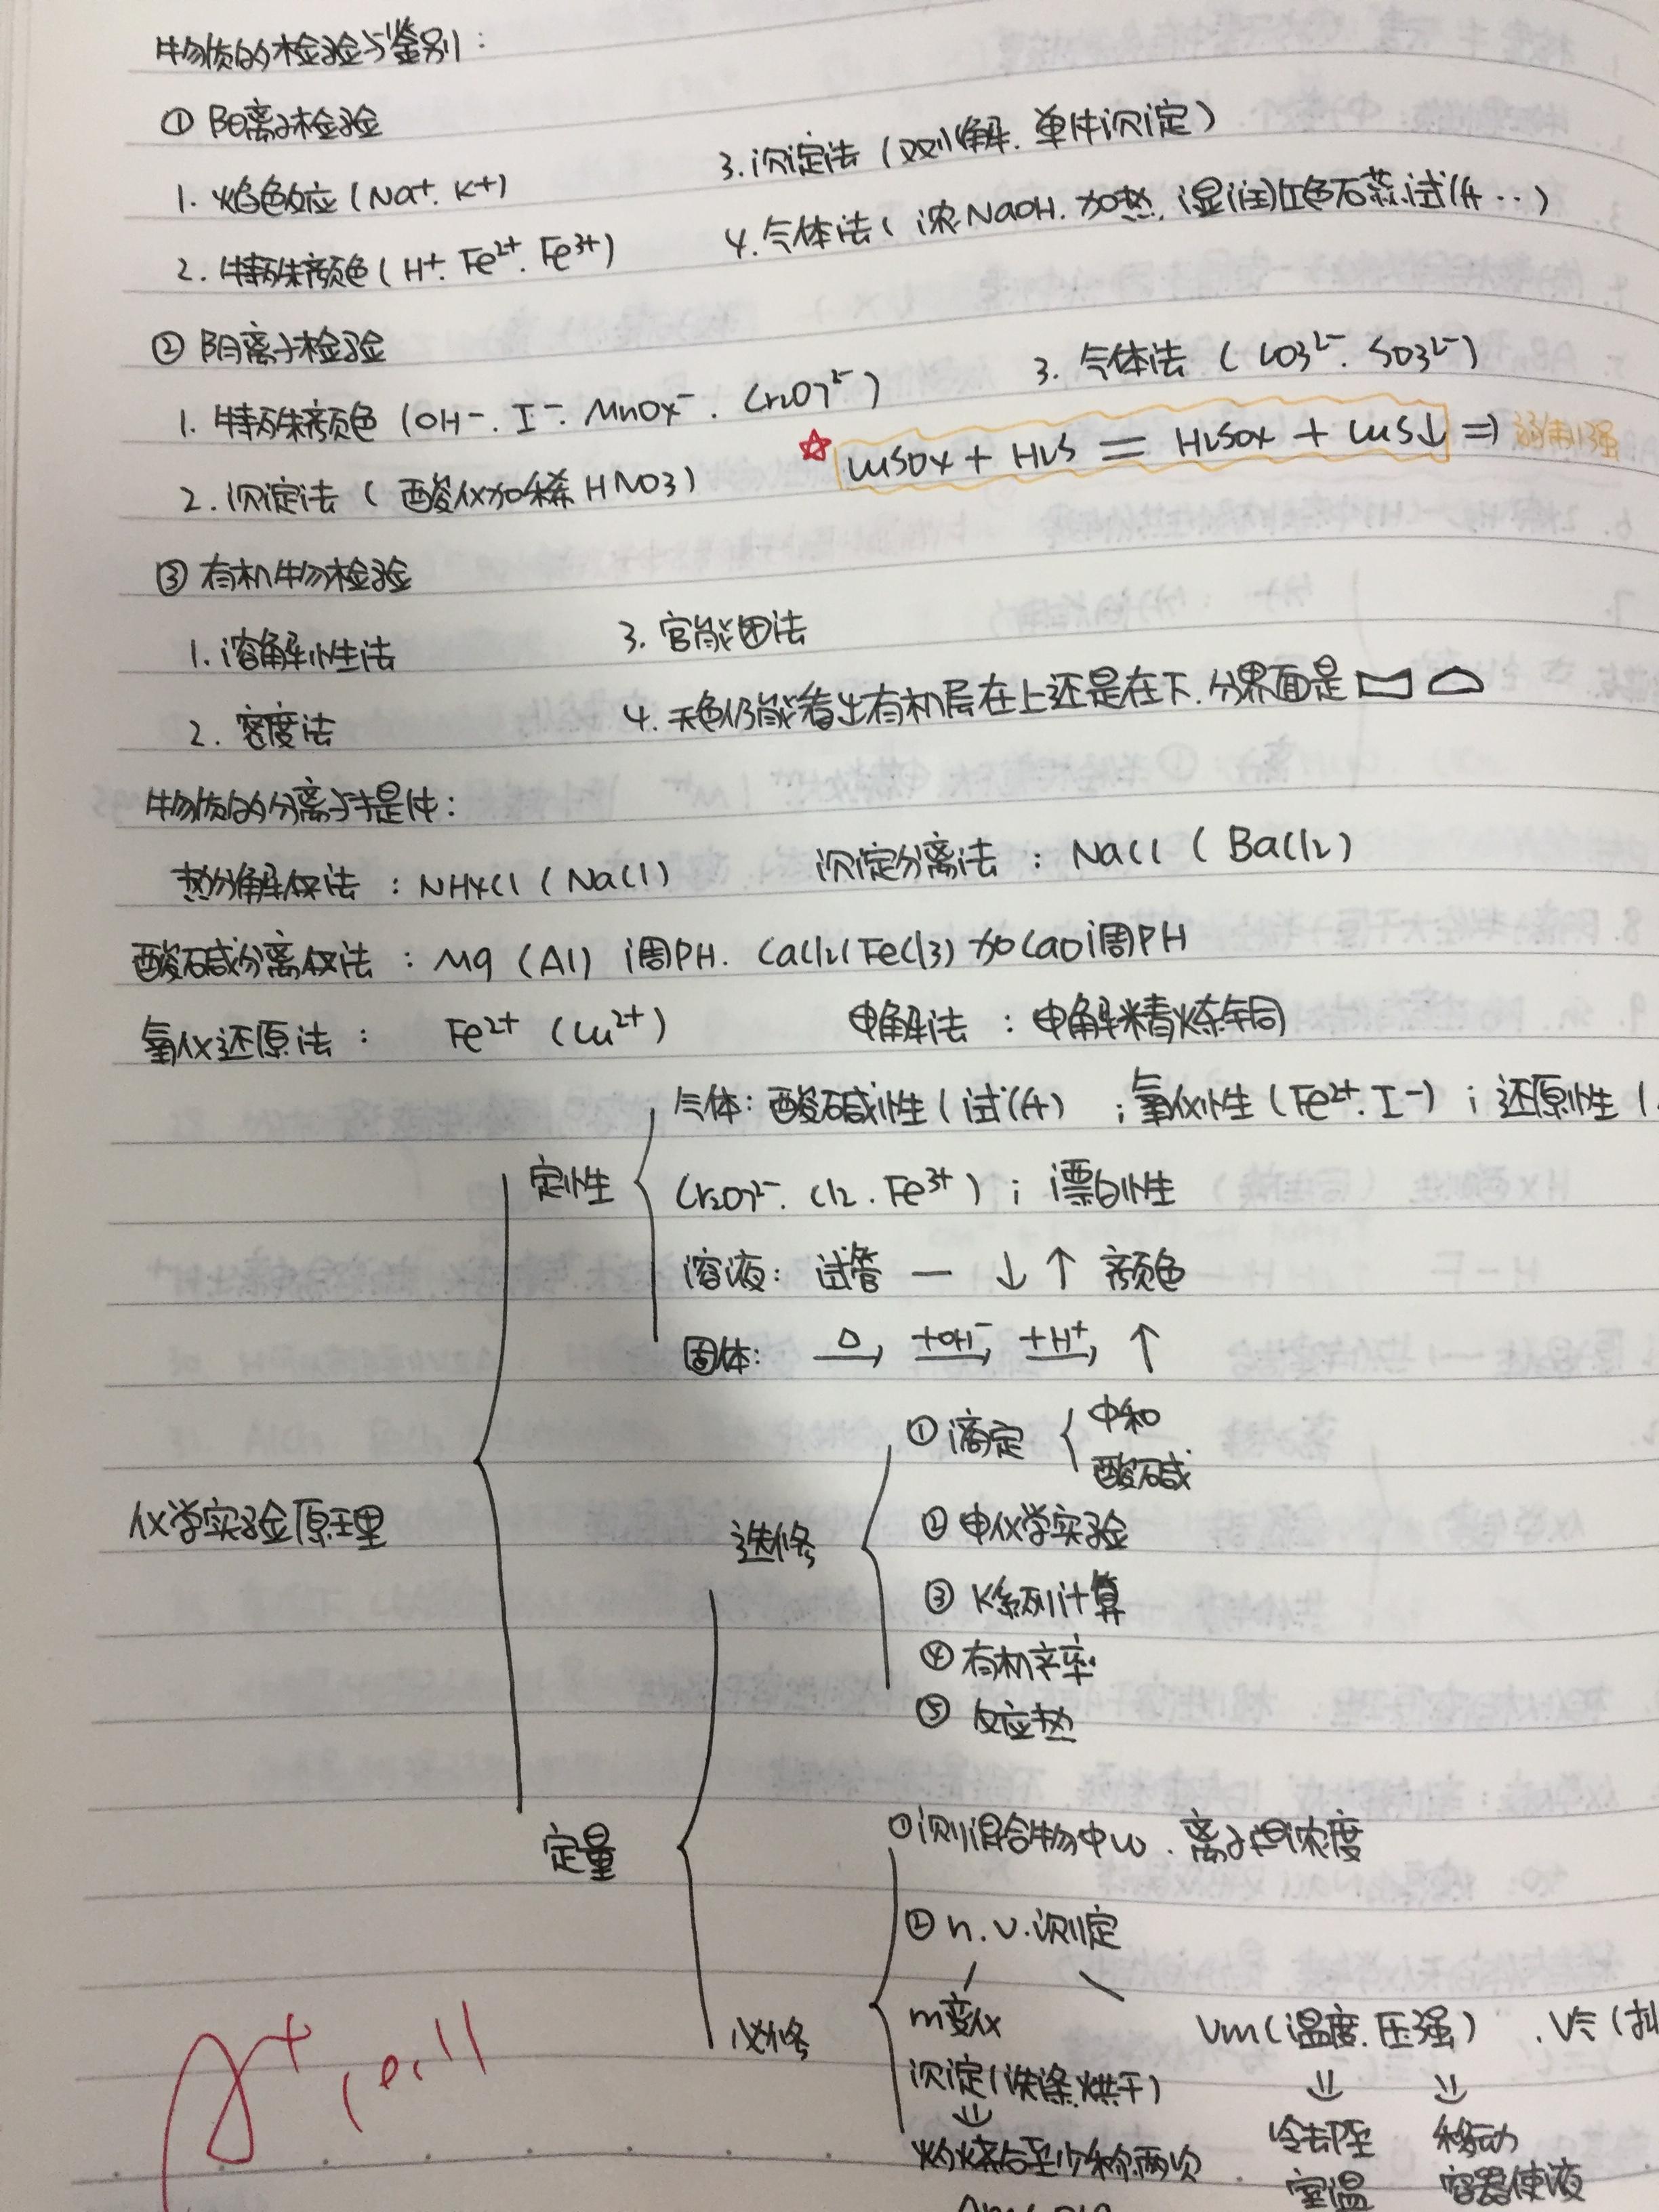 物质的检验与鉴别：
① 阳离子检验
1. 焰色反应（Na⁺. K⁺）
2. 特殊颜色（H⁺. Fe²⁺. Fe³⁺）
3. 沉淀法（双水解. 单件沉淀）
4. 气体法（浓NaOH. 加热. 湿润红色石蕊试纸…）
② 阴离子检验
1. 特殊颜色（OH⁻. I⁻. MnO4⁻. Cr2O7²⁻）
2. 沉淀法（酸化加稀HNO3）
3. 气体法（CO3²⁻. SO3²⁻）
CuSO4 + H2S = H2SO4 + CuS↓ ⇒ 弱制强
③ 有机物检验
1. 溶解性法
2. 密度法
3. 官能团法
4. 无色仍能看出有机层在上还是在下. 分界面是
物质的分离于提纯：
热分解仪法：NH4Cl（NaCl）
沉淀分离法：NaCl（BaCl2）
酸碱分离仪法：Mg（Al）调PH. CaCl2（FeCl3）加CaO调PH
氧化还原法： Fe²⁺（Cu²⁺）
电解法：电解精炼铜
化学实验原理
定性
气体：酸碱性（试纸）；氧化性（Fe²⁺. I⁻）；还原性（
Cr2O7²⁻. Cl2. Fe³⁺）；漂白性
溶液：试管 — ↓ ↑ 颜色
固体： △→ +OH⁻→ +H⁺→ ↑
定量
选修
① 滴定
中和
酸碱
② 电化学实验
③ K系列计算
④ 有机产率
⑤ 反应热
必修
① 测混合物中w. 离子浓度
② n. v. 测定
m变化
沉淀（洗涤烘干）
⇓
灼烧后至少称两次
Vm（温度. 压强）
⇓
冷却至
室温
. V气（
⇓
移动
容器使液